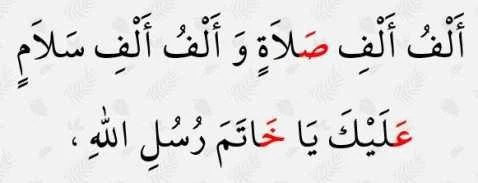 أَلْفُ أَلْفِ صَلاَةٍ وَ أَلْفُ أَلْفِ سَلاَمٍ
عَلَيْكَ يَا خَاتَمَ رُسُلِ اللهِ ،